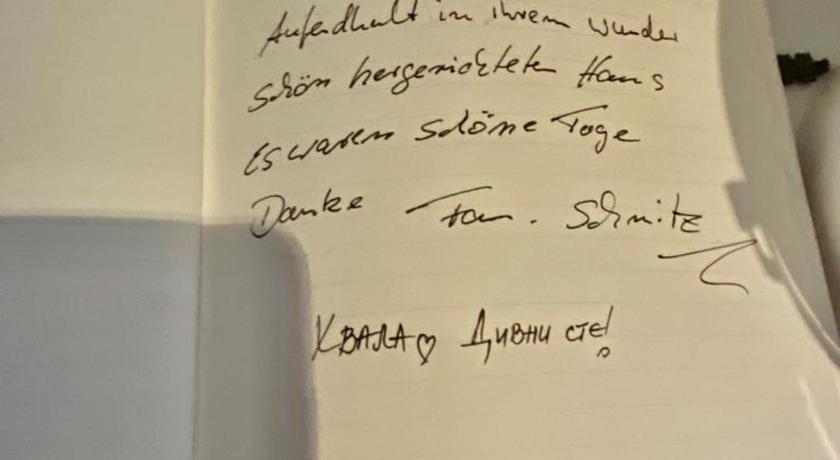 Aufendhalt in ihrem wunder
schön hergerichteten Haus
Es waren schöne Tage
Danke Fam. Schmitz
ХВАЛА♡ ДИВНИ СТЕ!